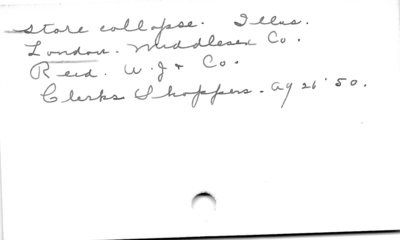 store collapse. Illus.
London. Middlesex Co.
Reid. W. J & Co.
Clerks Shoppers. Ag 26 '50.